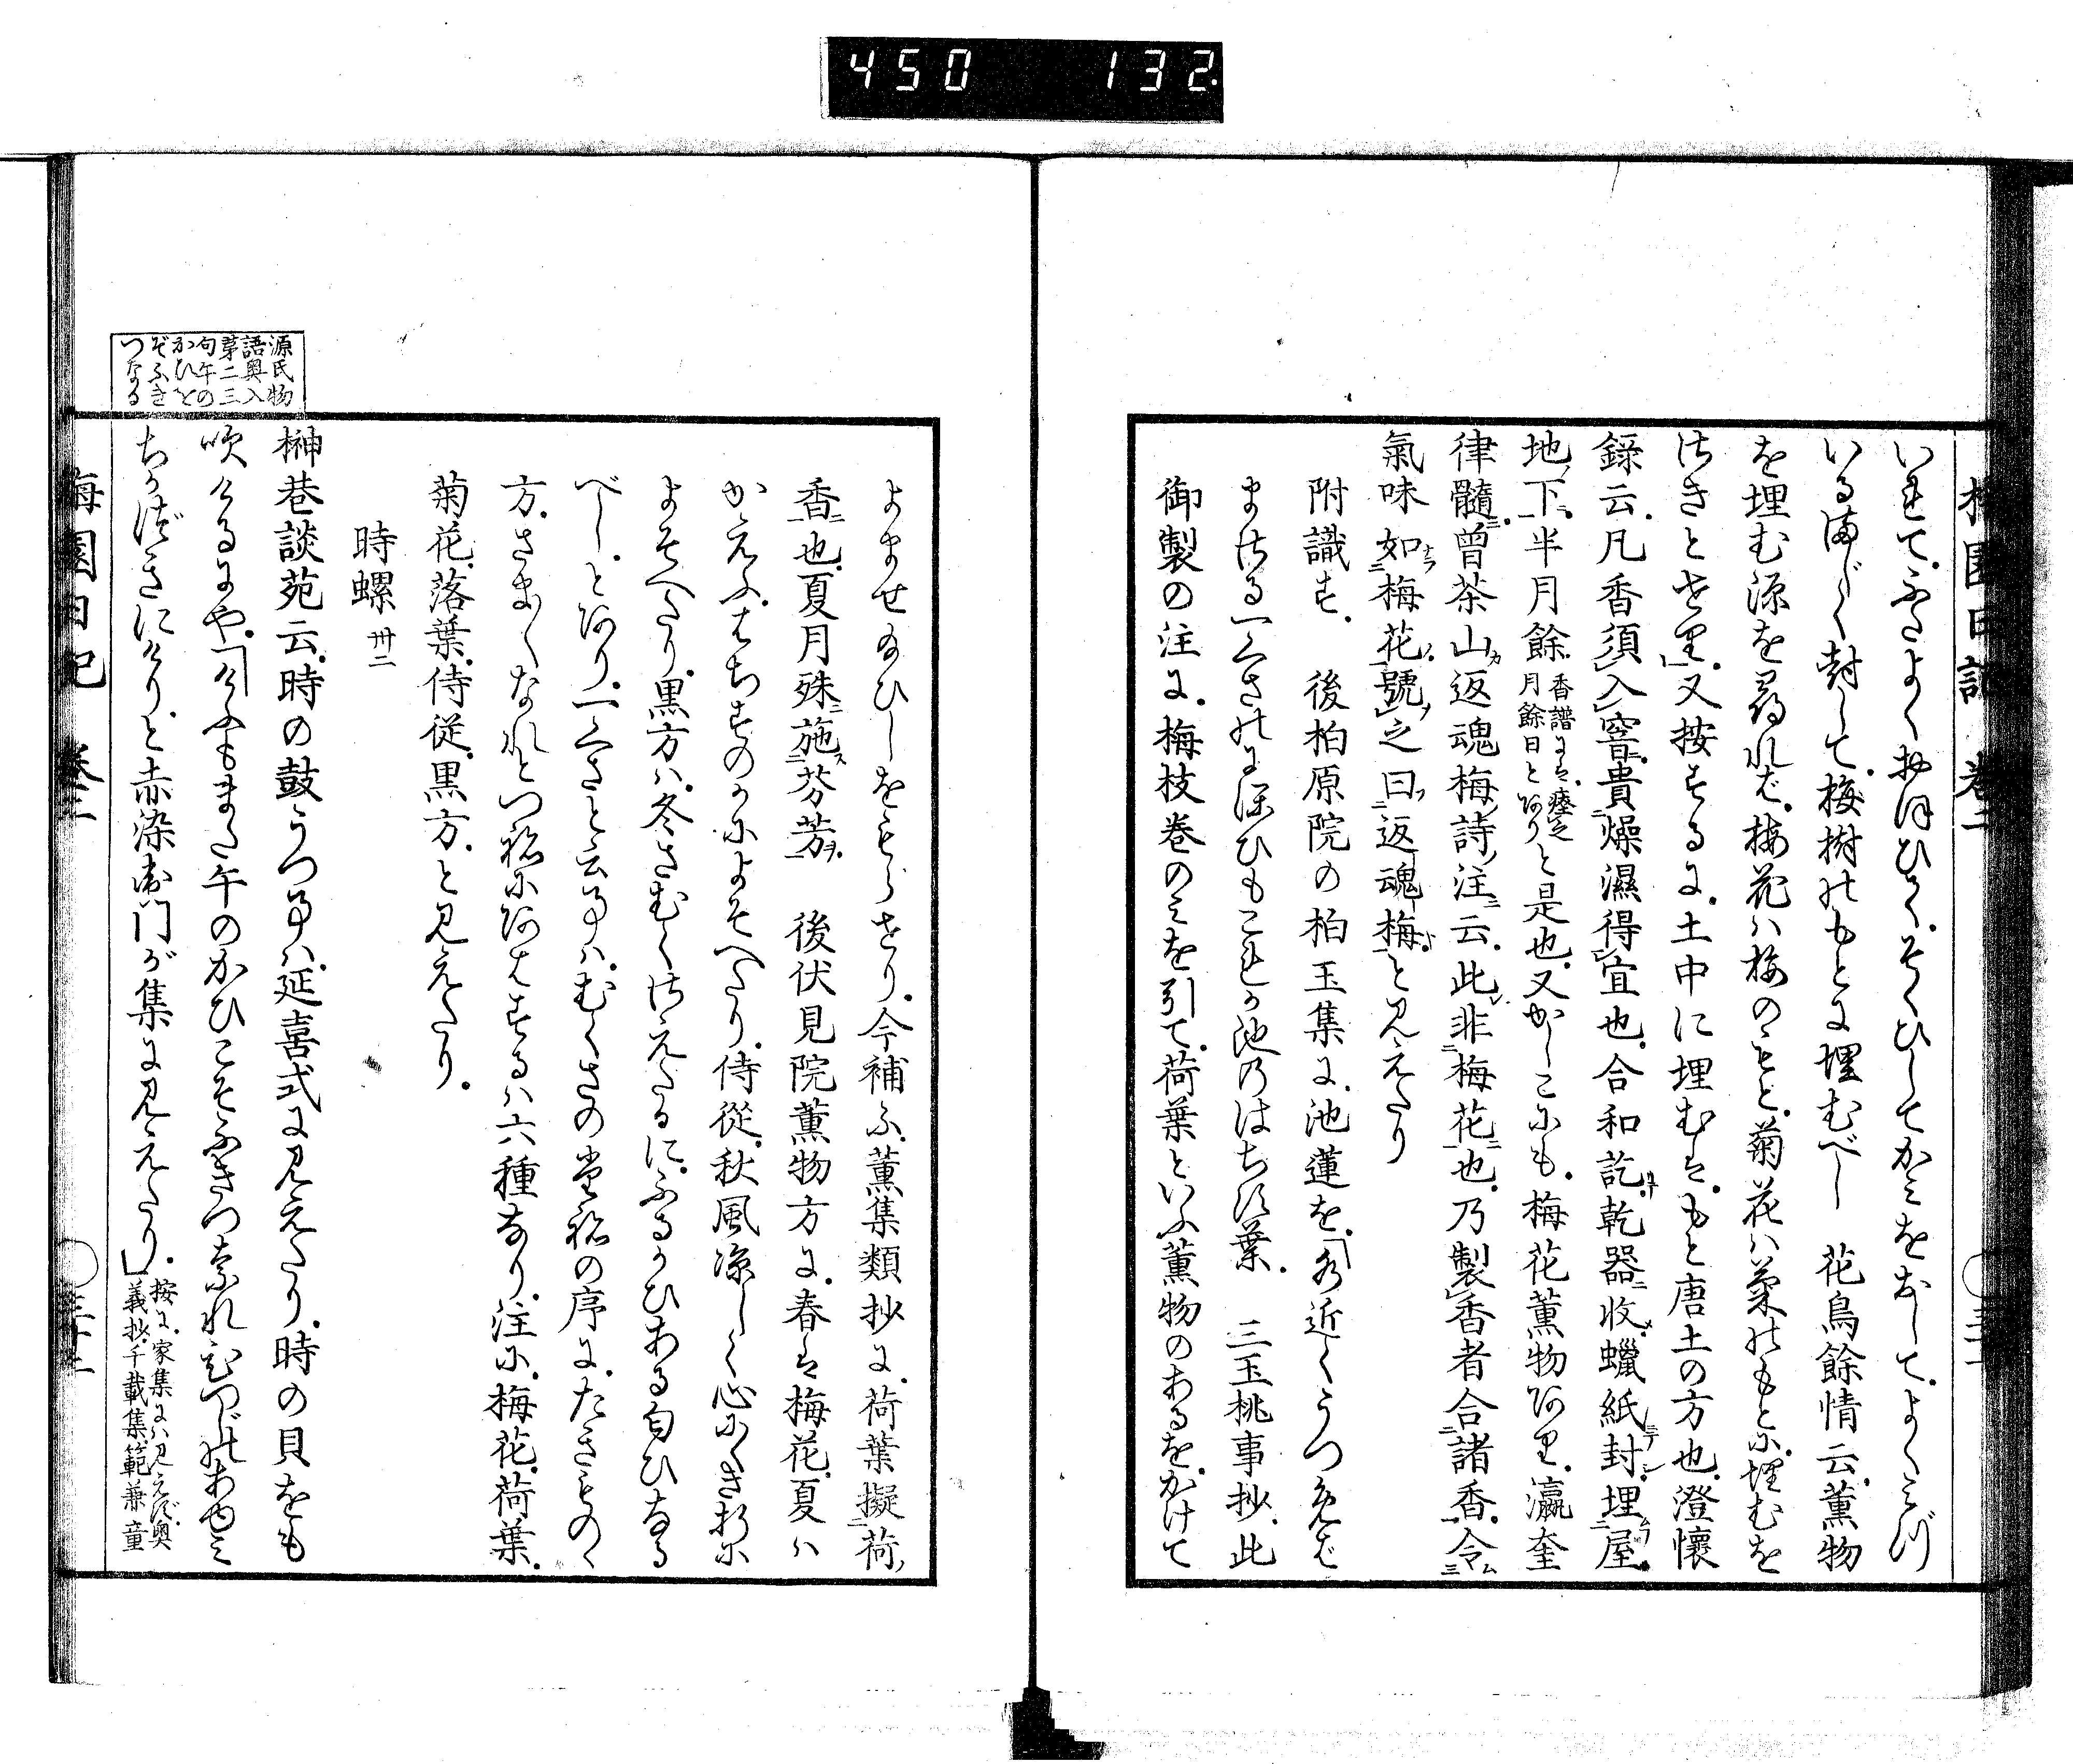 450 132
梅園日記 巻二 三十一
いれて。ふたよくおほひて。そくひしてかみをおして。よくみづ
いるまじく封して。梅樹のもとに埋むべし 花鳥餘情云。薫物
を埋む源を尋れば。梅花ハ梅のもと。菊花ハ菊のもとに。埋むを
はきとせり」又按するに。土中に埋むは。もと唐土の方也。澄懐
録云。凡香須入窨。貴燥濕得宜也。合和訖乾器收。蠟紙封。埋屋
地下半月餘。香譜には。瘞之月餘日とありと是也。又かしこにも。梅花薫物あり。瀛奎
律髓。曽茶山返魂梅詩注云。此非梅花也。乃製香者合諸香。令
氣味如梅花號之曰返魂梅。と見えたり
附識す。 後柏原院の柏玉集に。池蓮を。「水近くうつせば
まはる一くさのにほひもこれか池のはちす葉。 三玉桃事抄。此
御製の注に。梅枝巻のみを引て。荷葉といふ薫物のあるを。かけて
よませ給ひしをもらせり。今補ふ。薫集類抄に。荷葉擬荷
香也。夏月殊施芬芳 後伏見院薫物方に。春は梅花。夏ハ
かえふ。はちすのかによそへたり。侍從。秋風凉しく心にくき折に
よそへたり。黒方ハ。冬さむくはえたるに。ふるかひある匂ひなる
べし。とあり。一くさと云事ハ。むくさの
方。さまくなれとつねにあはするハ六種なり。注に。梅花。荷葉。
菊花。落葉。侍從。黒方。と見えたり。
時螺 卅二
榊巷談苑云。時の鼓うつ事ハ。延喜式に見えたり。時の貝をも
吹けるにや。「けふもまた午のかひこそふきつなれひつじのあゆみ
ちかづきにけり。と赤染衛門が集に見えたり。」按に。家集にハ見えず。奥義抄。千載集。範兼童
源氏物
語奥入
第二三
句午の
かひを
ぞふき
つなる
梅園日記 巻二 三十二